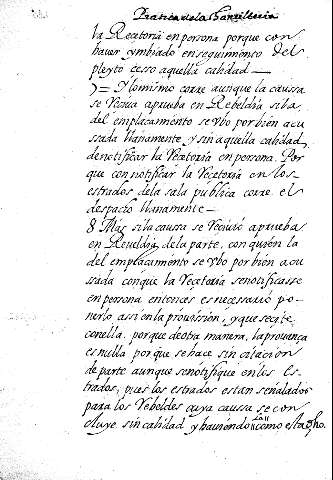 Pratica de la Chancilleria
la Recetoria en persona porque con
hauer ymbiado en seguimiento del
pleyto cesso aquella calidad —
7 = Y lo mismo corre aunque la caussa
se Reciua a prueba en Rebeldia si la
del emplaçamiento se vbo por bien acu
ssada llanamente, y sin aquella calidad
de notificar la Recetoria en persona. Por
que con notificar la Recetoria en los
estrados de la sala publica corre el
despacho llanamente —
8 Mas si la caussa se reciuió a prueba
en Reueldia de la parte, con quien la
del emplaçamiento se vbo por bien acu
ssada con que la Recetoria se notificasse
en persona entonces es necessario po-
nerlo assi en la prouission, y que se cite
con ella, porque de otra manera, la prouança
es nulla porque se hace sin citacion
de parte aunque se notifique en los Es-
trados, pues los estrados estan señalados
para los Rebeldes cuya caussa se con
cluye sin calidad y hauiendola como esta dho.